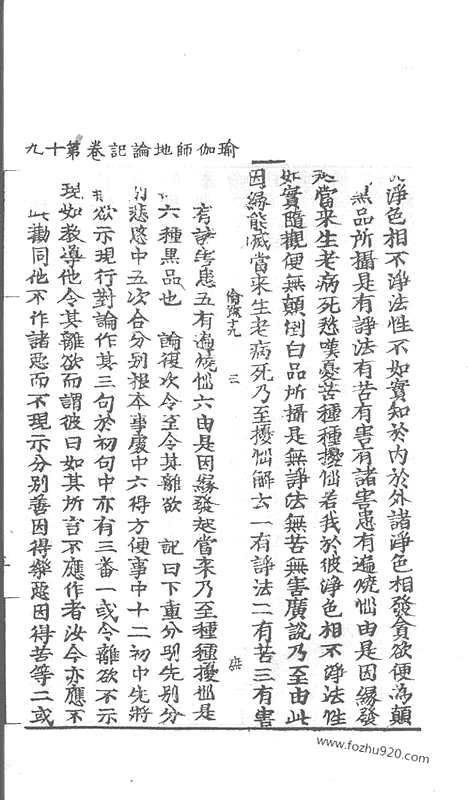 瑜伽師地論記卷第十九
淨色相不淨法性不如實知於內於外諸淨色相發貪欲便為顛
黑品所攝是有諍法有苦有害有諸害患有遍燒惱由是因緣發
起當來生老病死愁嘆憂苦種種擾惱若我於彼淨色相不淨法性
如實隨觀便無顛倒白品所攝是無諍法無苦無害廣說乃至由此
因緣能滅當來生老病死乃至擾惱解云一有諍法二有苦三有害
三
有諸害患五有遍燒惱六由是因緣發起當來乃至種種擾惱是
六種黑品也 論復次令至令其離欲 記曰下重分別先別分
別悲愍中五次合分別根本事處中六得方便事中十二初中先將
欲示現行對論作其三句於初句中亦有三番一或令離欲不示
現如教導他令其離欲而謂彼曰如其所言不應作者汝今亦應不
此勸同他不作諸惡而不現示分別善因得樂惡因得苦等二或
www.fozhu920.com